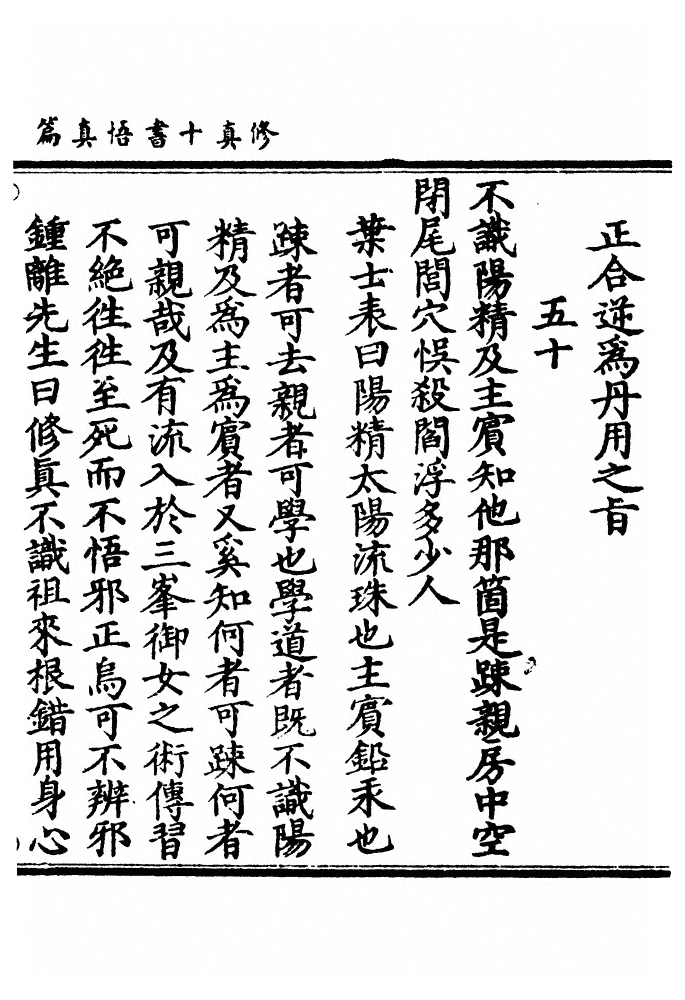 修真十書悟真篇
正合逆爲丹用之旨
五十
不識陽精及主賓知他那箇是踈親房中空
閉尾閭穴悮殺閻浮多少人
葉士表曰陽精太陽流珠也主賓鉛汞也
踈者可去親者可學也學道者既不識陽
精及爲主爲賓者又奚知何者可踈何者
可親哉及有流入於三峯御女之術傳習
不絶徃徃至死而不悟邪正烏可不辨邪
鍾離先生曰修眞不識祖來根錯用身心